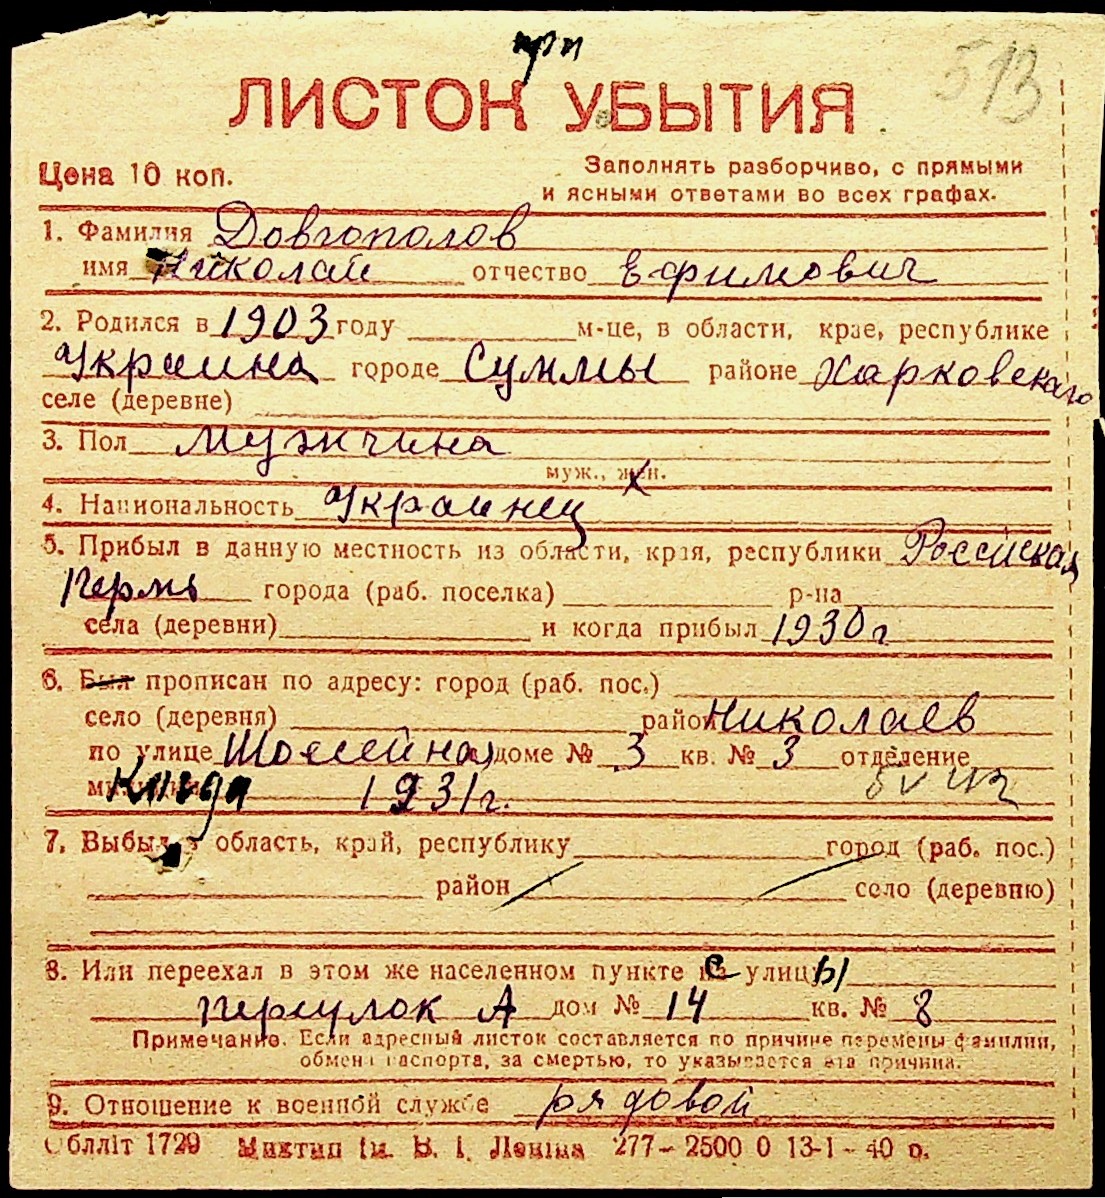 при 513
ЛИСТОК УБЫТИЯ
Цена 10 коп. Заполнять разборчиво, с прямыми
и ясными ответами во всех графах.
1. Фамилия Довгополов
имя Николай отчество Ефимович
2. Родился в 1903 году м-це, в области, крае, республике
Украина городе Суммы районе Харковскаго
селе (деревне)
3. Пол мужчина
муж., жен.
4. Национальность Украинец
5. Прибыл в данную местность из области, края, республики Россиская
Пермь города (раб. поселка) р-на
села (деревни) и когда прибыл 1930 г
6. Был прописан по адресу: город (раб. пос.)
село (деревня) район Николаев
по улице Шоссейная доме № 3 кв. № 3 отделение
Когда 1931 г.
7. Выбыл в область, край, республику город (раб. пос.)
район село (деревню)
8. Или переехал в этом же населенном пункте с улицы
переулок А дом № 14 кв. № 8
Примечание. Если адресный листок составляется по причине перемены фамилии,
обмена паспорта, за смертью, то указывается эта причина.
9. Отношение к военной службе рядовой
Облліт 1729 Миктип ім. В. І. Леніна 277–2500 0 13-1-40 р.